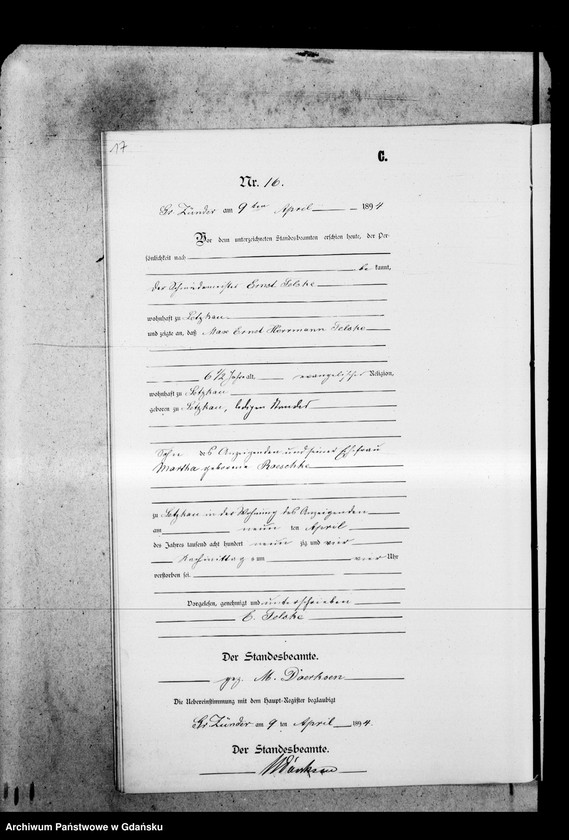 17
C.
Nr. 16.
Gr. Zünder am 9ten April 1894
Vor dem unterzeichneten Standesbeamten erschien heute, der Per-
sönlichkeit nach
be kannt,
der Schmiedemeister Ernst
wohnhaft zu Letzkau
und zeigte an, daß Max Ernst Herrmann
6 1/2 Jahre alt, evangelischer Religion,
wohnhaft zu Letzkau
geboren zu Letzkau, ledigen Standes
Sohn des Anzeigenden und seiner Ehefrau
Martha geborene
zu Letzkau in der Wohnung des Anzeigenden
am neun ten April
des Jahres tausend acht hundert neun zig und vier
Nachmittags um vier Uhr
verstorben sei.
Vorgelesen, genehmigt und unterschrieben
E.
Der Standesbeamte.
gez. M. Doerksen
Die Uebereinstimmung mit dem Haupt-Register beglaubigt
Gr. Zünder am 9 ten April 1894.
Der Standesbeamte.
Archiwum Państwowe w Gdańsku